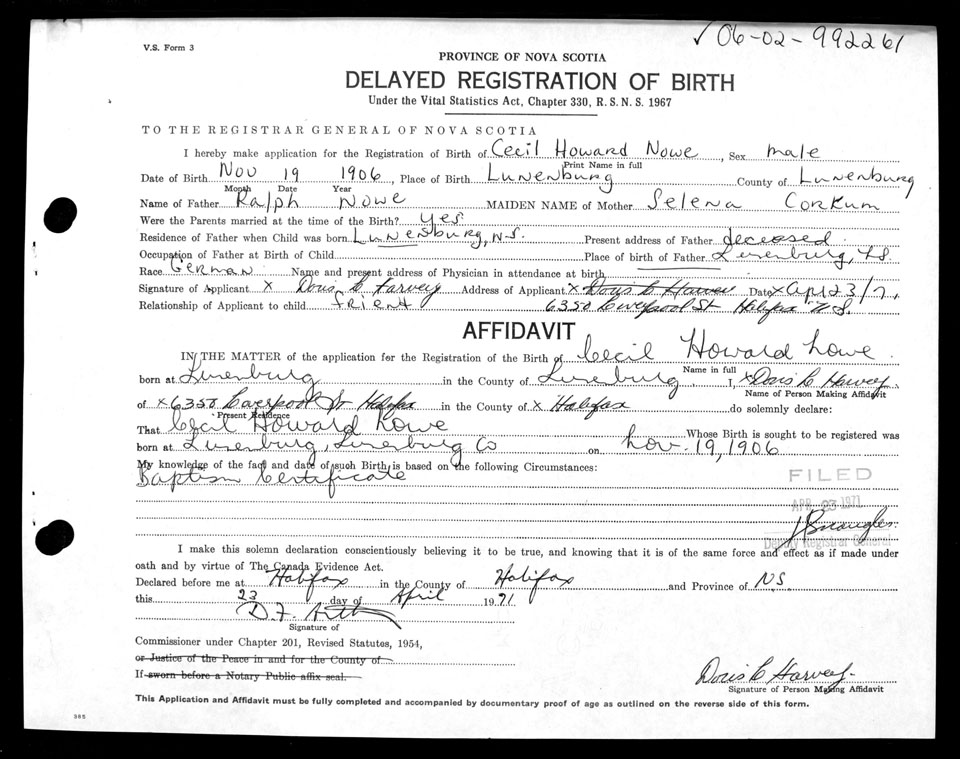 ✓ 06-02-992261
V.S. Form 3
PROVINCE OF NOVA SCOTIA
DELAYED REGISTRATION OF BIRTH
Under the Vital Statistics Act, Chapter 330, R. S. N. S. 1967
TO THE REGISTRAR GENERAL OF NOVA SCOTIA
I hereby make application for the Registration of Birth of Cecil Howard Nowe, Sex male
Print Name in full
Date of Birth Nov 19 1906, Place of Birth Lunenburg County of Lunenburg
Month Date Year
Name of Father Ralph Nowe MAIDEN NAME of Mother Selena Corkum
Were the Parents married at the time of the Birth? yes
Residence of Father when Child was born Lunenburg, N.S. Present address of Father deceased
Occupation of Father at Birth of Child Place of birth of Father Lunenburg, N.S.
Race German Name and present address of Physician in attendance at birth
Signature of Applicant x Doris C Harvey Address of Applicant x Doris C Harvey Date x Apr 23/71
Relationship of Applicant to child friend 6350 Liverpool St Halifax N.S.
AFFIDAVIT
IN THE MATTER of the application for the Registration of the Birth of Cecil Howard Nowe
Name in full
born at Lunenburg in the County of Lunenburg, I x Doris C Harvey
Name of Person Making Affidavit
of x 6350 Liverpool St Halifax in the County of x Halifax do solemnly declare:
Present Residence
That Cecil Howard Nowe Whose Birth is sought to be registered was
born at Lunenburg, Lunenburg Co on Nov. 19, 1906
My knowledge of the fact and date of such Birth is based on the following Circumstances:
Baptism Certificate
FILED
APR 23 1971
Deputy Registrar General
I make this solemn declaration conscientiously believing it to be true, and knowing that it is of the same force and effect as if made under
oath and by virtue of The Canada Evidence Act.
Declared before me at Halifax in the County of Halifax and Province of N.S.
this 23 day of April 1971
D. F.
Signature of
Commissioner under Chapter 201, Revised Statutes, 1954,
or Justice of the Peace in and for the County of
If sworn before a Notary Public affix seal.
Doris C Harvey
Signature of Person Making Affidavit
This Application and Affidavit must be fully completed and accompanied by documentary proof of age as outlined on the reverse side of this form.